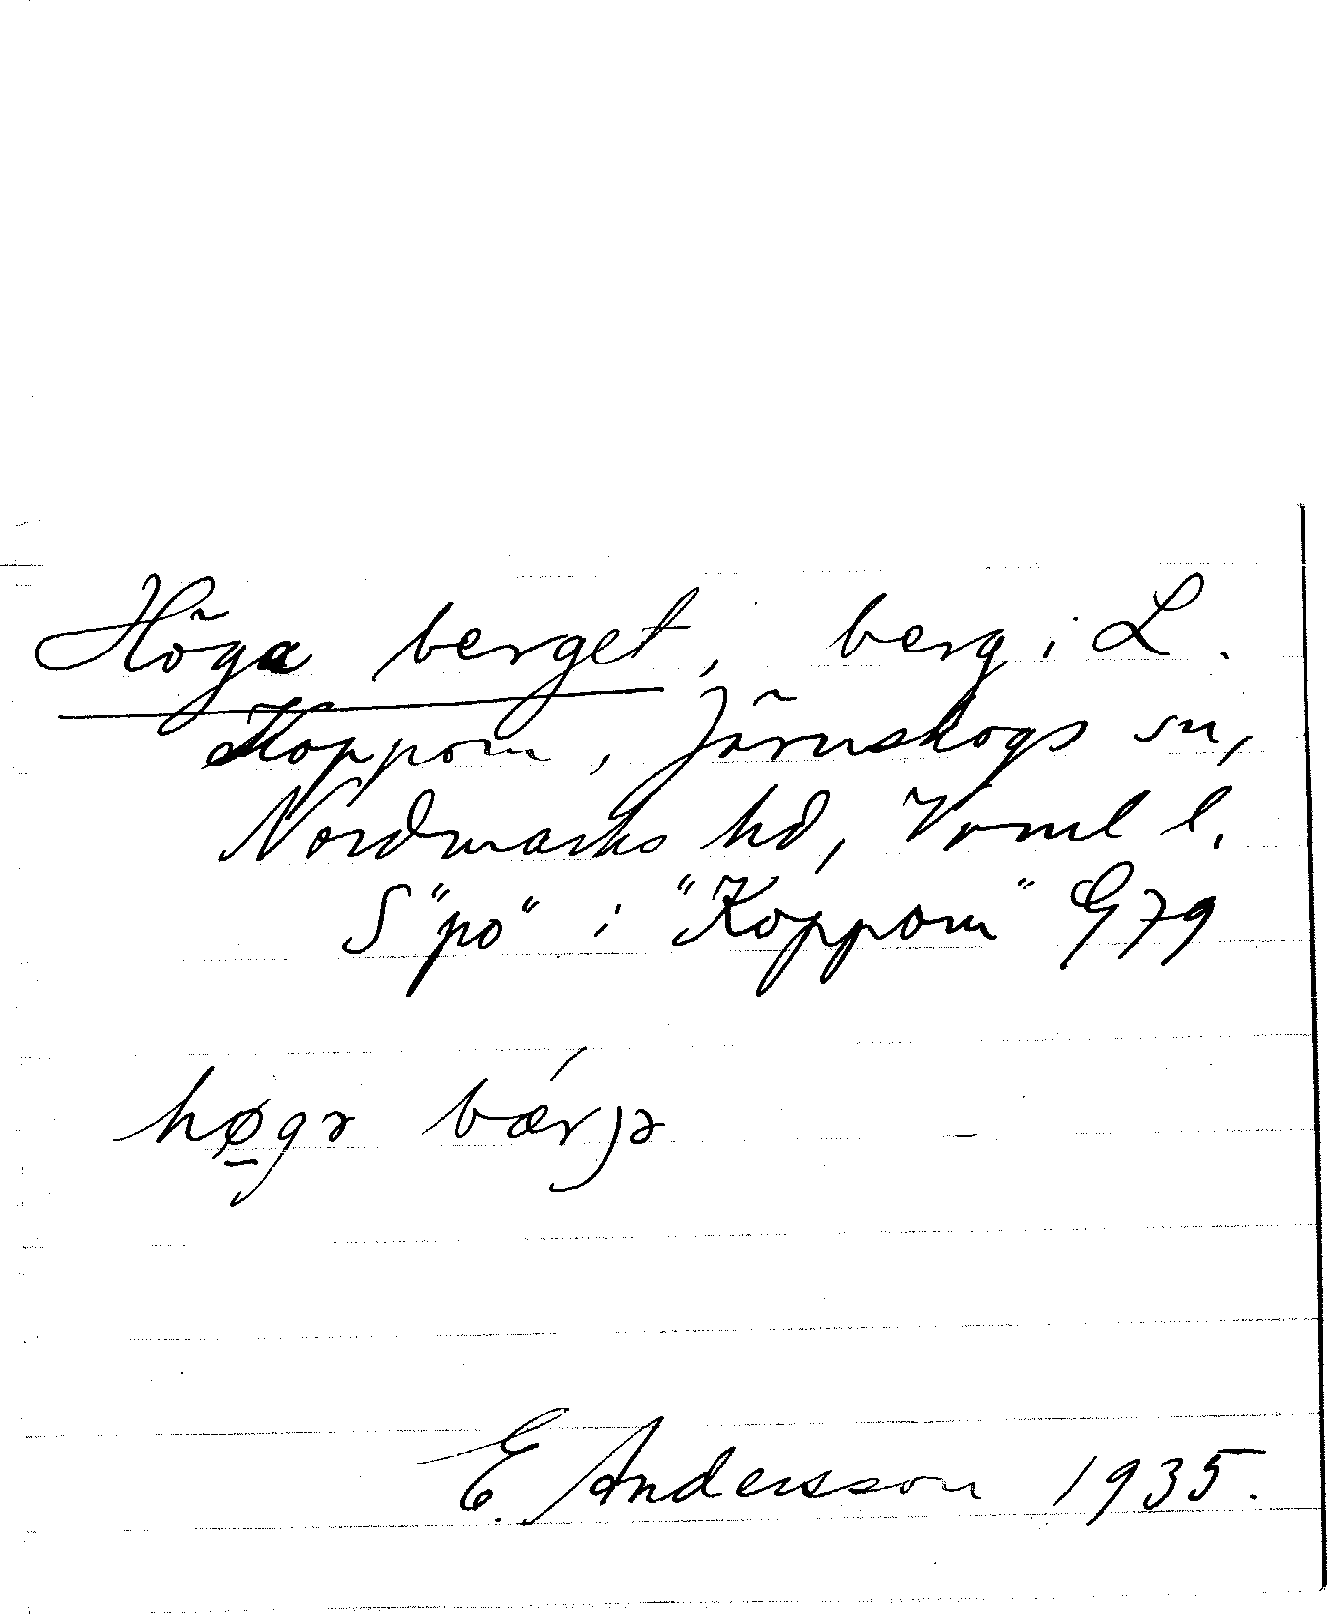 Höga berget, berg i L.
Koppom, Järnskogs sn,
Nordmarks hd, Vrml l.
S "po" i "Koppom" G79
hø̱gə bǽrjə
E. Andersson 1935.